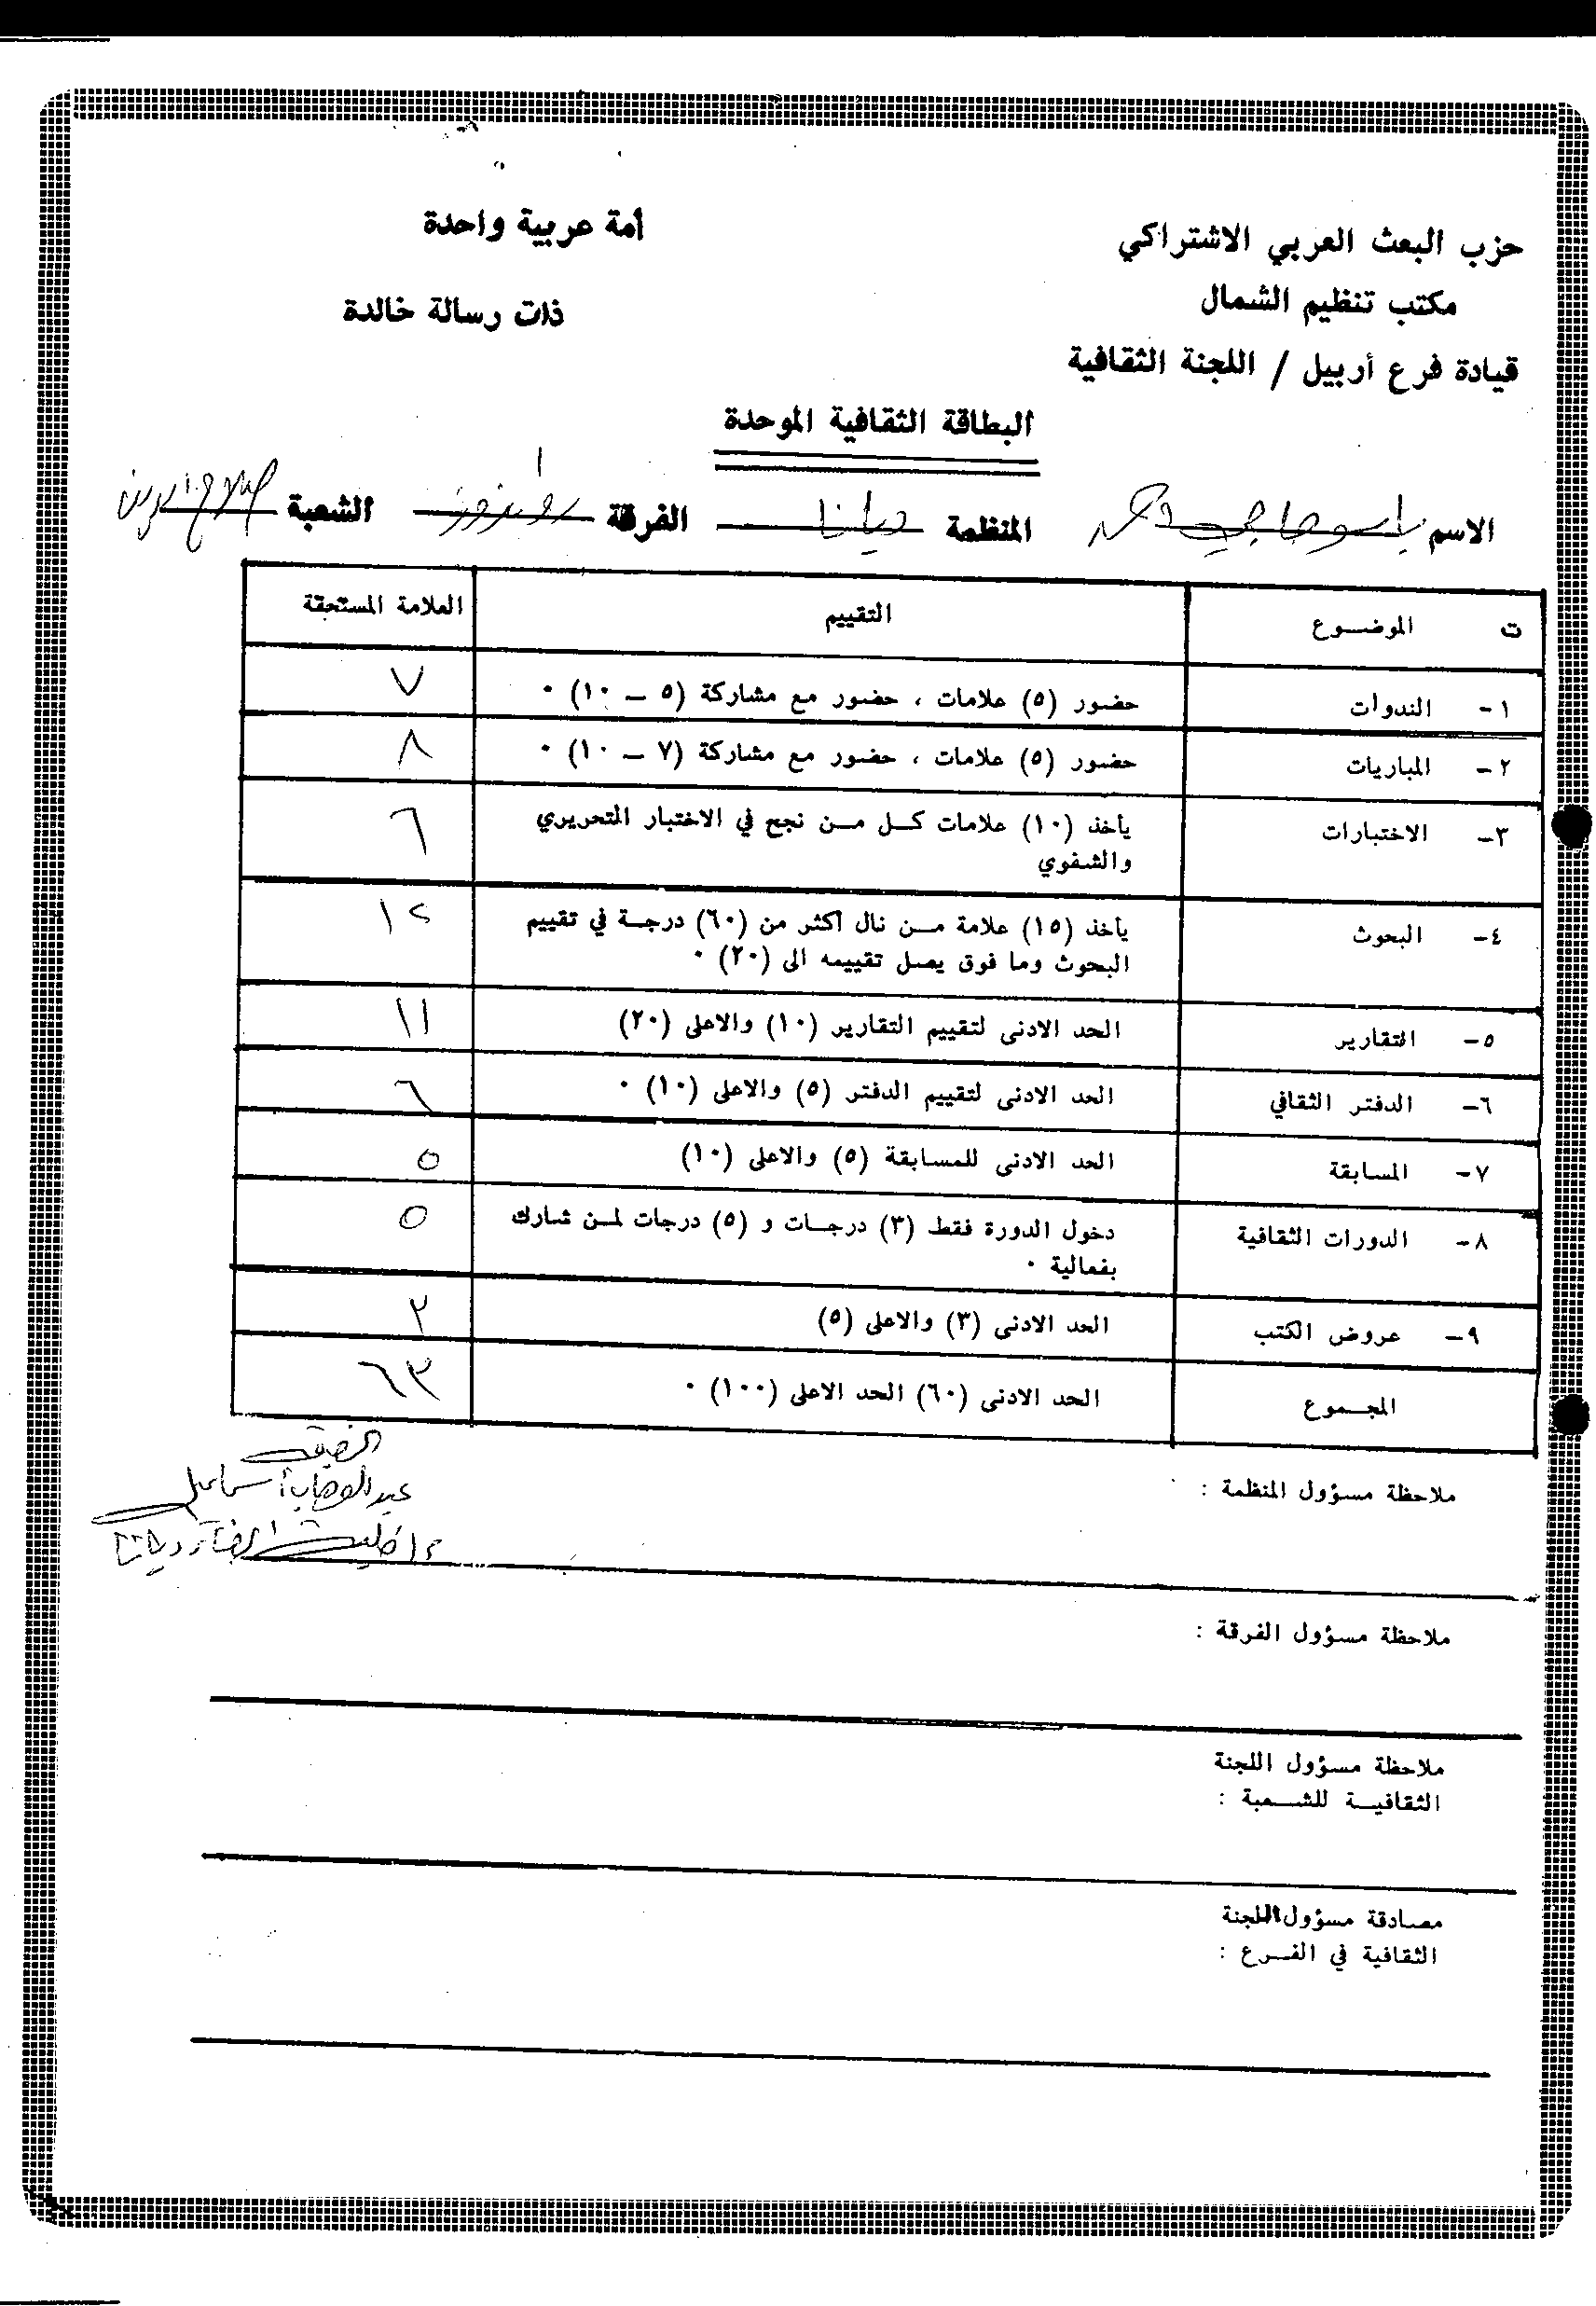 حزب البعث العربي الاشتراكي
أمة عربية واحدة
مكتب تنظيم الشمال
ذات رسالة خالدة
قيادة فرع أربيل / اللجنة الثقافية
البطاقة الثقافية الموحدة
الاسم المنظمة ديانا الفرقة رواندوز الشعبة صلاح الدين
ت الموضـــوع التقييم العلامة المستحقة
١- الندوات حضور (٥) علامات ، حضور مع مشاركة (٥ – ١٠) ٠ ٧
٢- المباريات حضور (٥) علامات ، حضور مع مشاركة (٧ – ١٠) ٠ ٨
٣- الاختبارات يأخذ (١٠) علامات كــل مــن نجح في الاختبار المتحريري ٦
والشفوي
٤- البحوث يأخذ (١٥) علامة مــن نال اكثر من (٦٠) درجــة في تقييم ١٢
البحوث وما فوق يصل تقييمه الى (٢٠) ٠
٥- التقارير الحد الادنى لتقييم التقارير (١٠) والاعلى (٢٠) ١١
٦- الدفتر الثقافي الحد الادنى لتقييم الدفتر (٥) والاعلى (١٠) ٠ ٦
٧- المسابقة الحد الادنى للمسابقة (٥) والاعلى (١٠) ٥
٨- الدورات الثقافية دخول الدورة فقط (٣) درجــات و (٥) درجات لمــن شارك ٥
بفعالية ٠
٩- عروض الكتب الحد الادنى (٣) والاعلى (٥) ٣
المجــموع الحد الادنى (٦٠) الحد الاعلى (١٠٠) ٠ ٦٣
الرفيق
عبدالوهاب اسماعيل
ملاحظة مسؤول المنظمة :
ديانا
ملاحظة مسؤول الفرقة :
ملاحظة مسؤول اللجنة
الثقافيــة للشــعبة :
مصادقة مسؤول اللجنة
الثقافية في الفــرع :